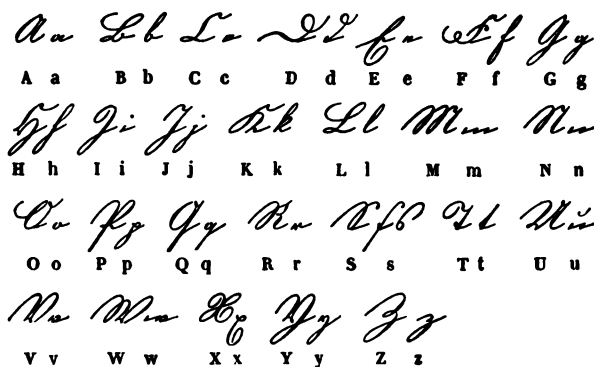 A a B b C c D d E e F f G g
A a B b C c D d E e F f G g
H h I i J j K k L l M m N n
H h I i J j K k L l M m N n
O o P p Q q R r S ſ s T t U u
O o P p Q q R r S s T t U u
V v W w X x Y y Z z
V v W w X x Y y Z z